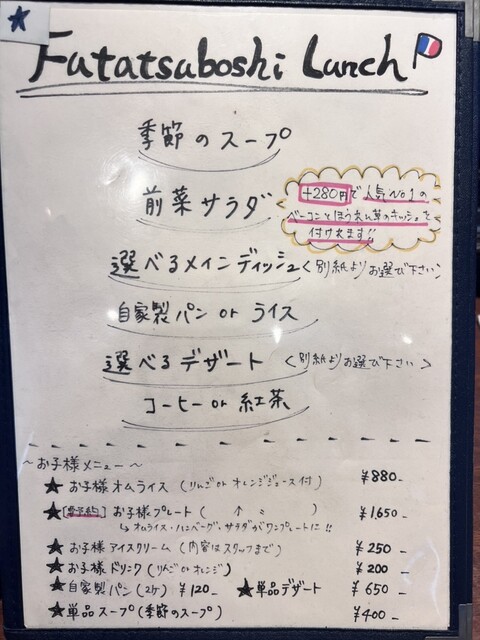 Futatsuboshi Lunch
季節のスープ
前菜サラダ
+280円で人気No1の
ベーコンとほうれん草のキッシュを
付けれます!!
選べるメインディッシュ<別紙よりお選び下さい>
自家製パン or ライス
選べるデザート <別紙よりお選び下さい>
コーヒー or 紅茶
~お子様メニュー~
★ お子様オムライス (りんご or オレンジジュース付) ¥880-
★[要予約] お子様プレート ( 〃 ) ¥1,650-
↳ オムライス・ハンバーグ・サラダがワンプレートに!!
★ お子様アイスクリーム (内容はスタッフまで) ¥250-
★ お子様ドリンク (りんご or オレンジ) ¥200-
★ 自家製パン (2ケ) ¥120- ★単品デザート ¥650-
★ 単品スープ (季節のスープ) ¥400-